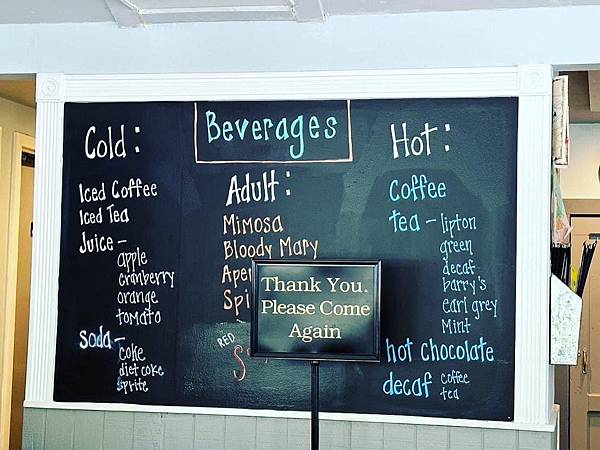 Beverages
Cold:
Iced Coffee
Iced Tea
Juice -
apple
cranberry
orange
tomato
soda -
coke
diet coke
sprite
Adult:
Mimosa
Bloody Mary
RED
Thank You.
Please Come
Again
Hot:
coffee
tea - lipton
green
decaf
barry's
earl grey
Mint
hot chocolate
decaf coffee
tea